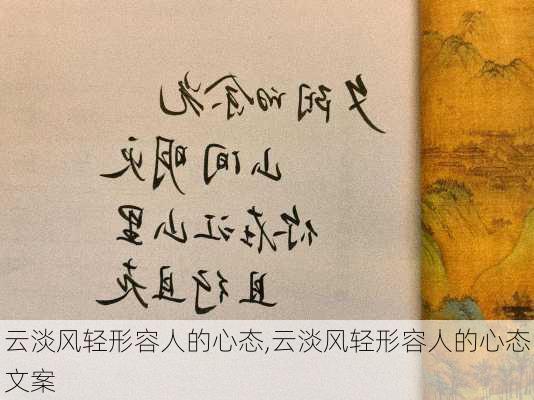 夕阳的余光
山间明灭
你在江山里
且行且走
云淡风轻形容人的心态,云淡风轻形容人的心态
文案